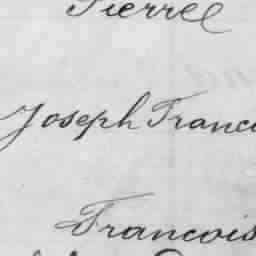 Pierre
Joseph Franc
Francois